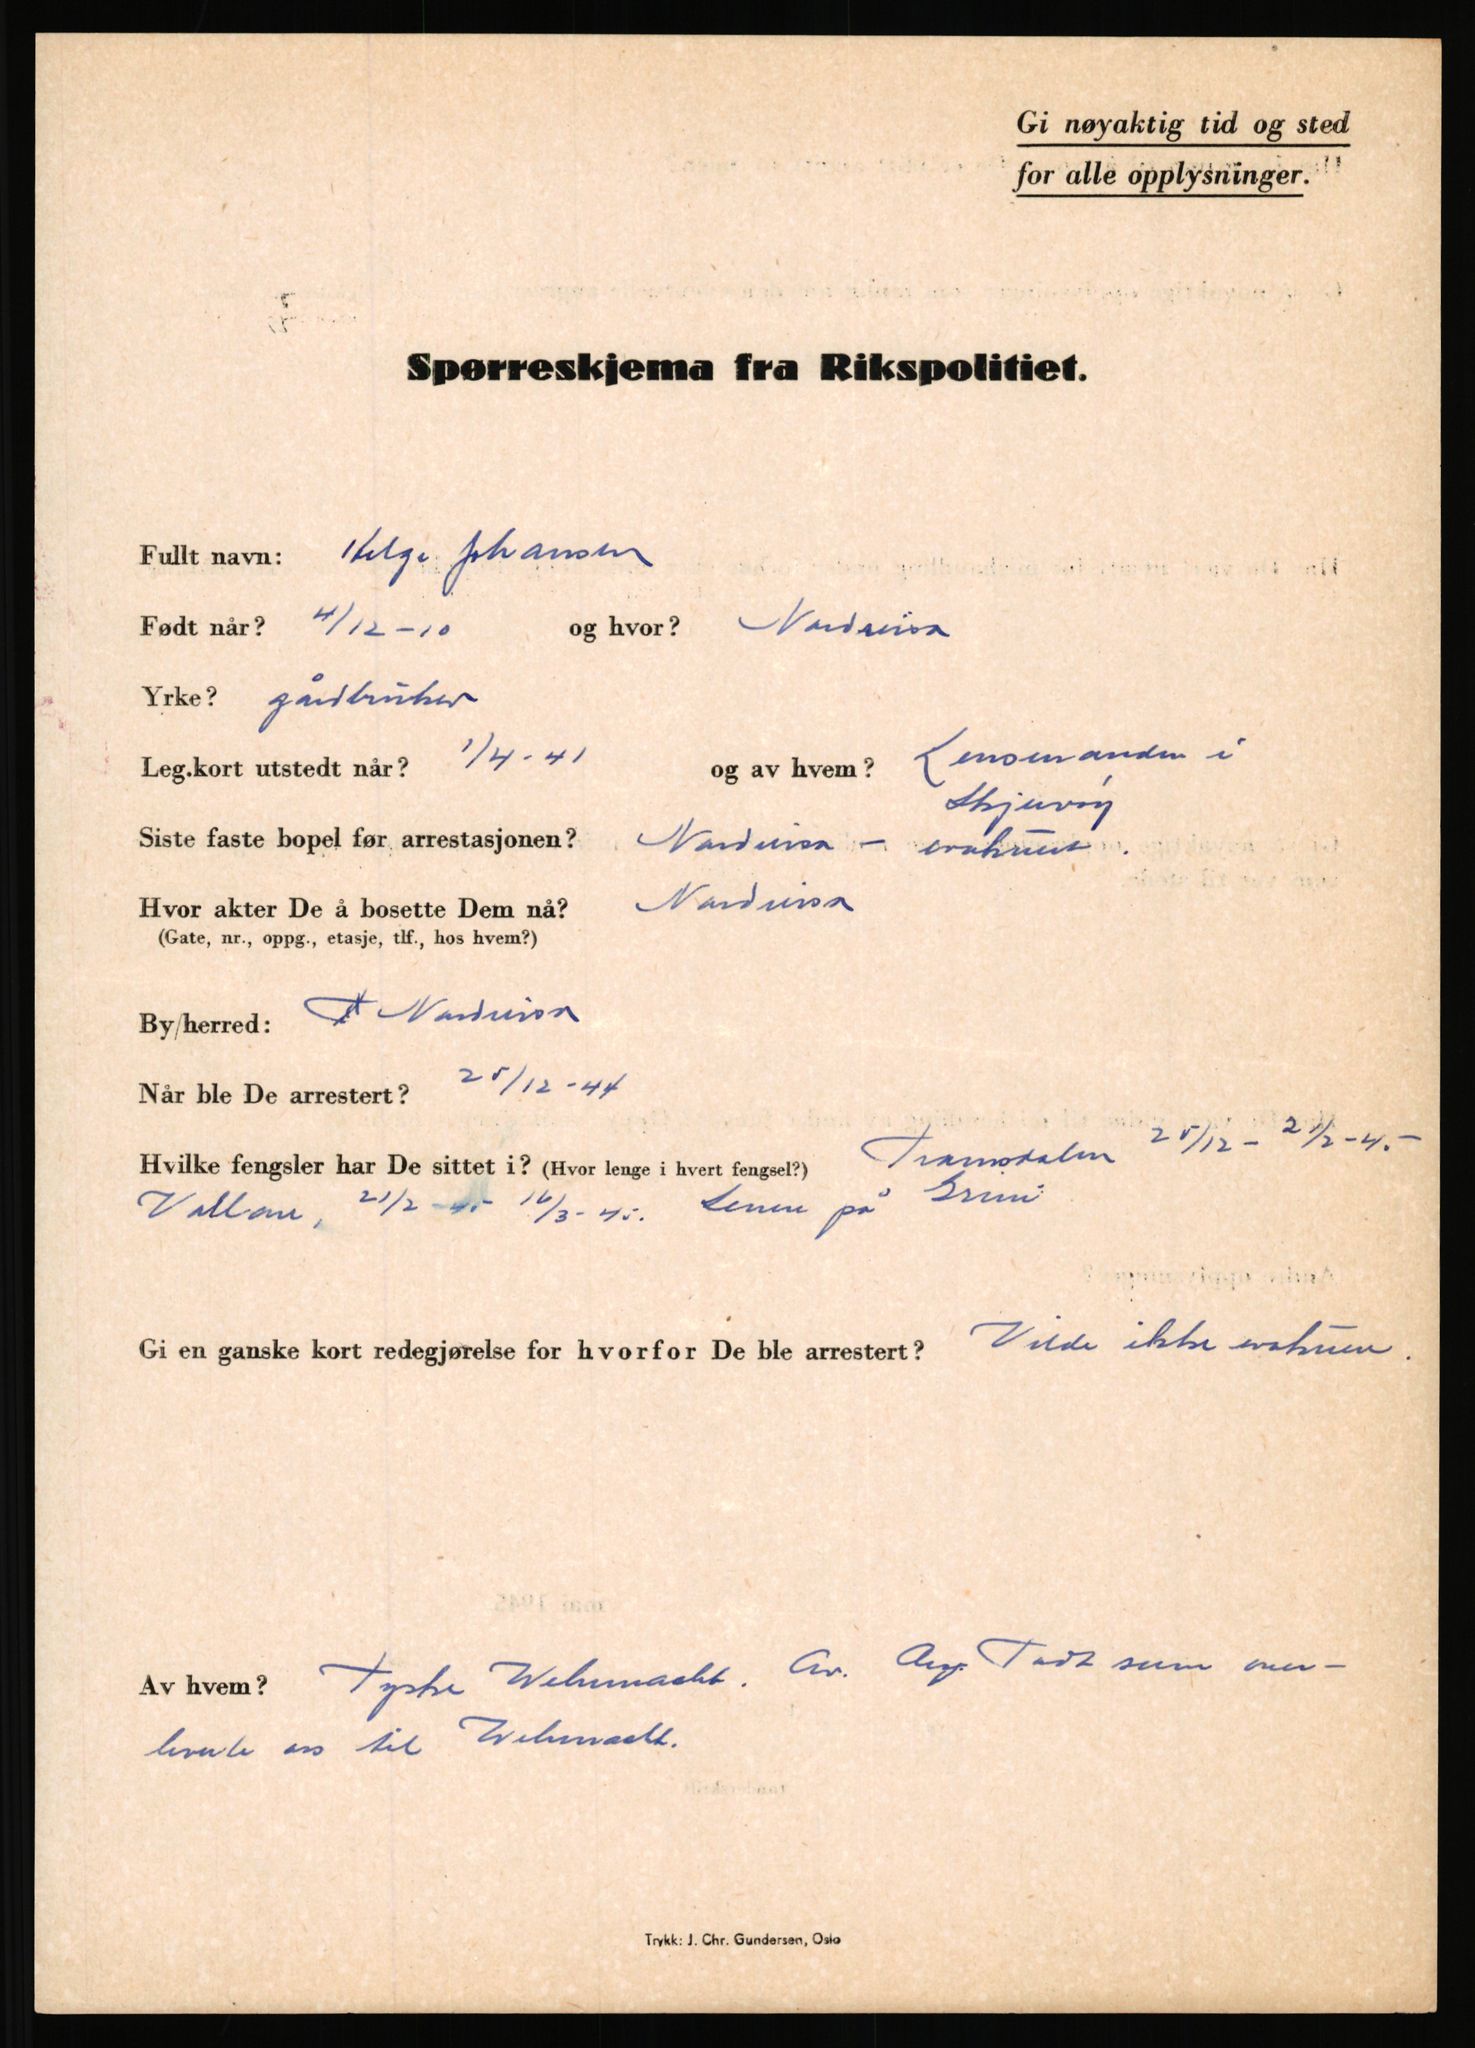 Gi nøyaktig tid og sted
for alle opplysninger.
Spørreskjema fra Rikspolitiet.
Fullt navn: Helge Johansen
Født når? 4/12-10 og hvor? Nordreisa
Yrke? gårdbruker
Leg.kort utstedt når? 1/4-41 og av hvem? Lensmanden i
Skjervøy
Siste faste bopel før arrestasjonen? Nordreisa - evakuert.
Hvor akter De å bosette Dem nå? Nordreisa
(Gate, nr., oppg., etasje, tlf., hos hvem?)
By/herred: Nordreisa
Når ble De arrestert? 25/12-44
Hvilke fengsler har De sittet i? (Hvor lenge i hvert fengsel?) Tromsdalen 25/12 - 21/2-45
Vollan, 21/2-45 16/3-45. Senere på Grini
Gi en ganske kort redegjørelse for hvorfor De ble arrestert? Vilde ikke evakuere.
Av hvem? Tyske Wehrmacht. Av. Org. Todt som over-
leverte oss til Wehrmacht.
Trykk: J. Chr. Gundersen, Oslo